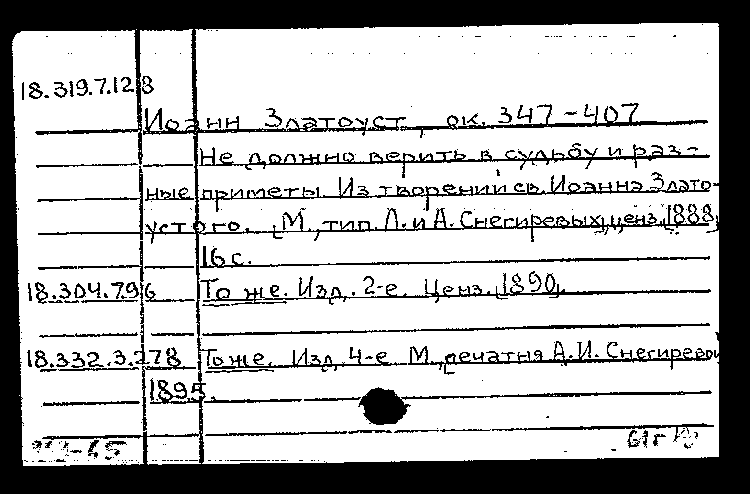 18.319.7.128
Иоанн Златоуст, ок. 347-407
Не должно верить в судьбу и раз-
ные приметы. Из творений св. Иоанна Злато-
устого. [М., тип. Л. и А. Снегиревых, ценз. 1888]
16 с.
18.304.7.96 То же. Изд. 2-е. Ценз. [1890].
18.332.3.278 То же. Изд. 4-е. М., печатня А.И. Снегиревой
1895.
61г